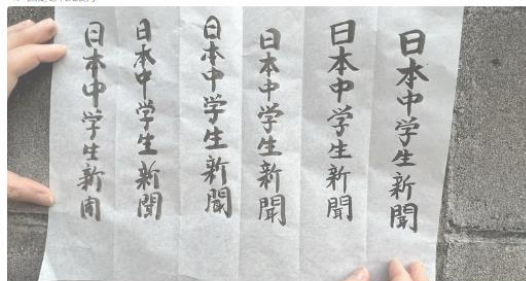 日本中学生新聞
日本中学生新聞
日本中学生新聞
日本中学生新聞
日本中学生新聞
日本中学生新聞